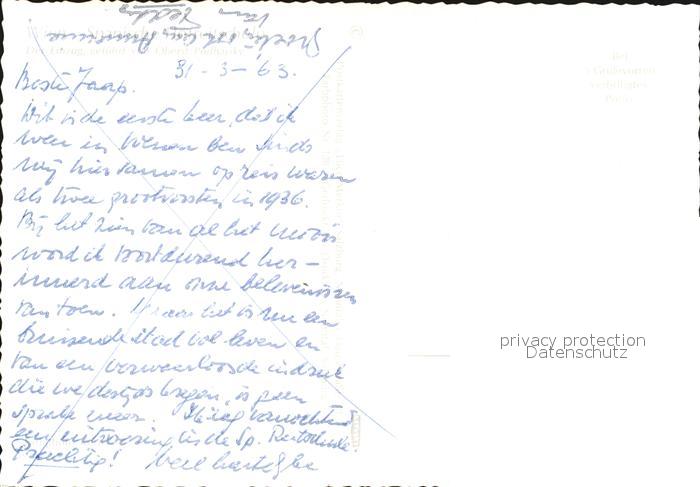 31-3-'63.
Beste Jaap.
Dit is de eerste keer, dat ik
weer in Wenen ben sinds
wij hier samen op reis waren
als twee grootvorsten in 1936.
Bij het zien van al het moois
word ik voortdurend her-
innerd aan onze belevenissen
van toen. Maar het is nu een
bruisende stad vol leven en
van een verwaarloosde indruk
die we destijds kregen, is geen
sprake meer. vanochtend
een uitvoering in de Sp. Reitschule.
Prachtig! Veel hartelijke
Bei
5 Grußworten
verbilligtes
Porto
privacy protection
Datenschutz